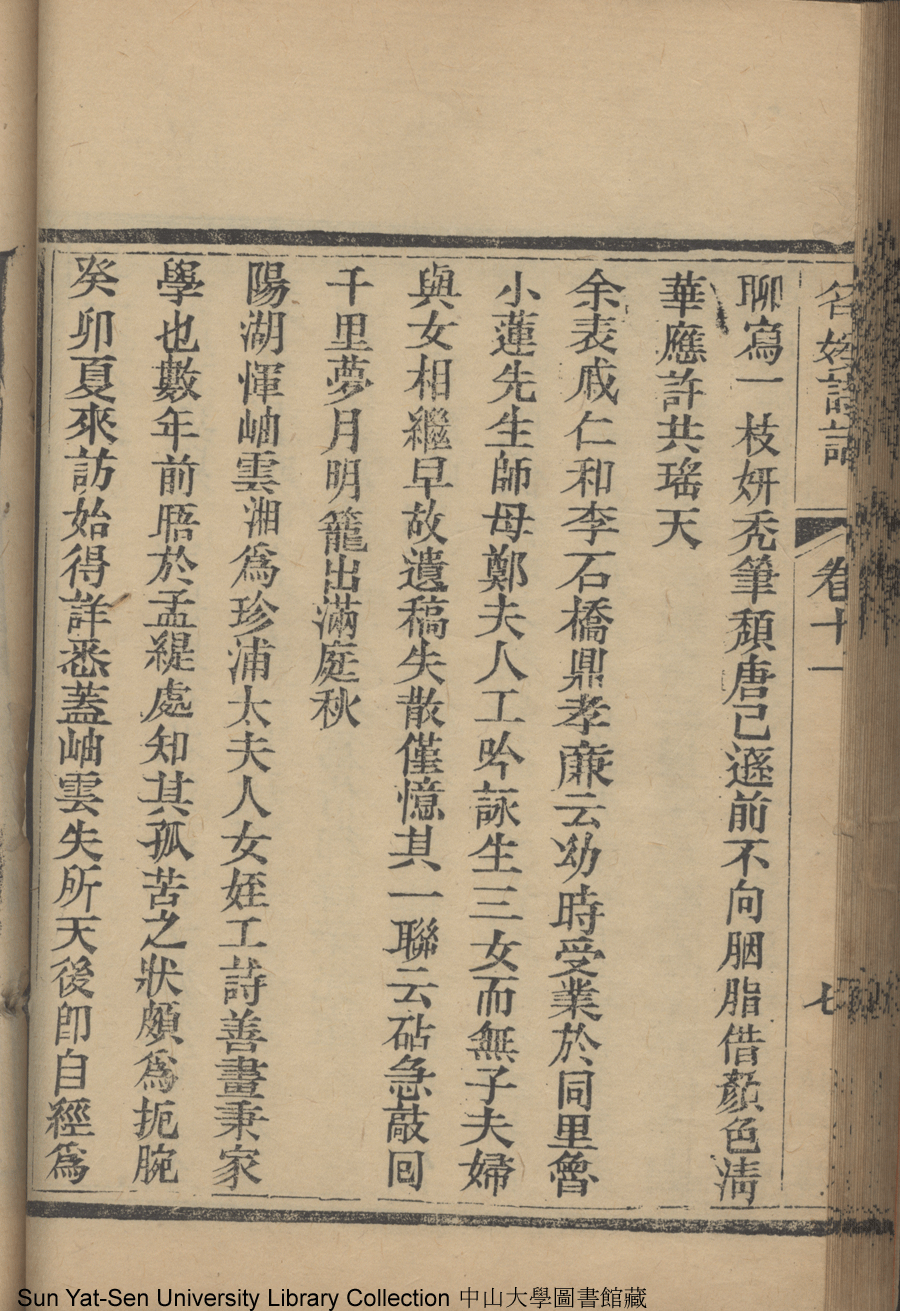 名媛詩話 卷十一 七
聊寫一枝妍禿筆頽唐已遜前不向胭脂借顏色淸
華應許共瑤天
余表戚仁和李石橋鼎孝廉云幼時受業於同里魯
小蓮先生師母鄭夫人工吟詠生三女而無子夫婦
與女相繼早故遺稿失散僅憶其一聯云砧急敲回
千里夢月明籠出滿庭秋
陽湖惲岫雲湘爲珍浦太夫人女姪工詩善畫秉家
學也數年前晤於孟緹處知其孤苦之狀頗爲扼腕
癸卯夏來訪始得詳悉蓋岫雲失所天後卽自經爲
Sun Yat-Sen University Library Collection 中山大學圖書館藏